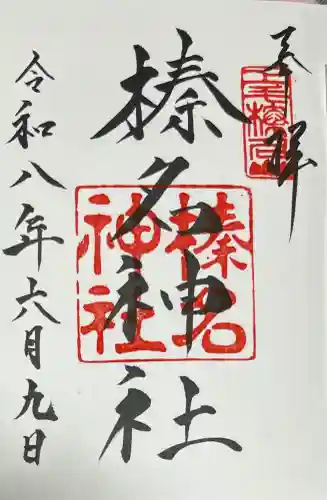 奉拝
榛名神社
榛名
神社
令和八年六月九日